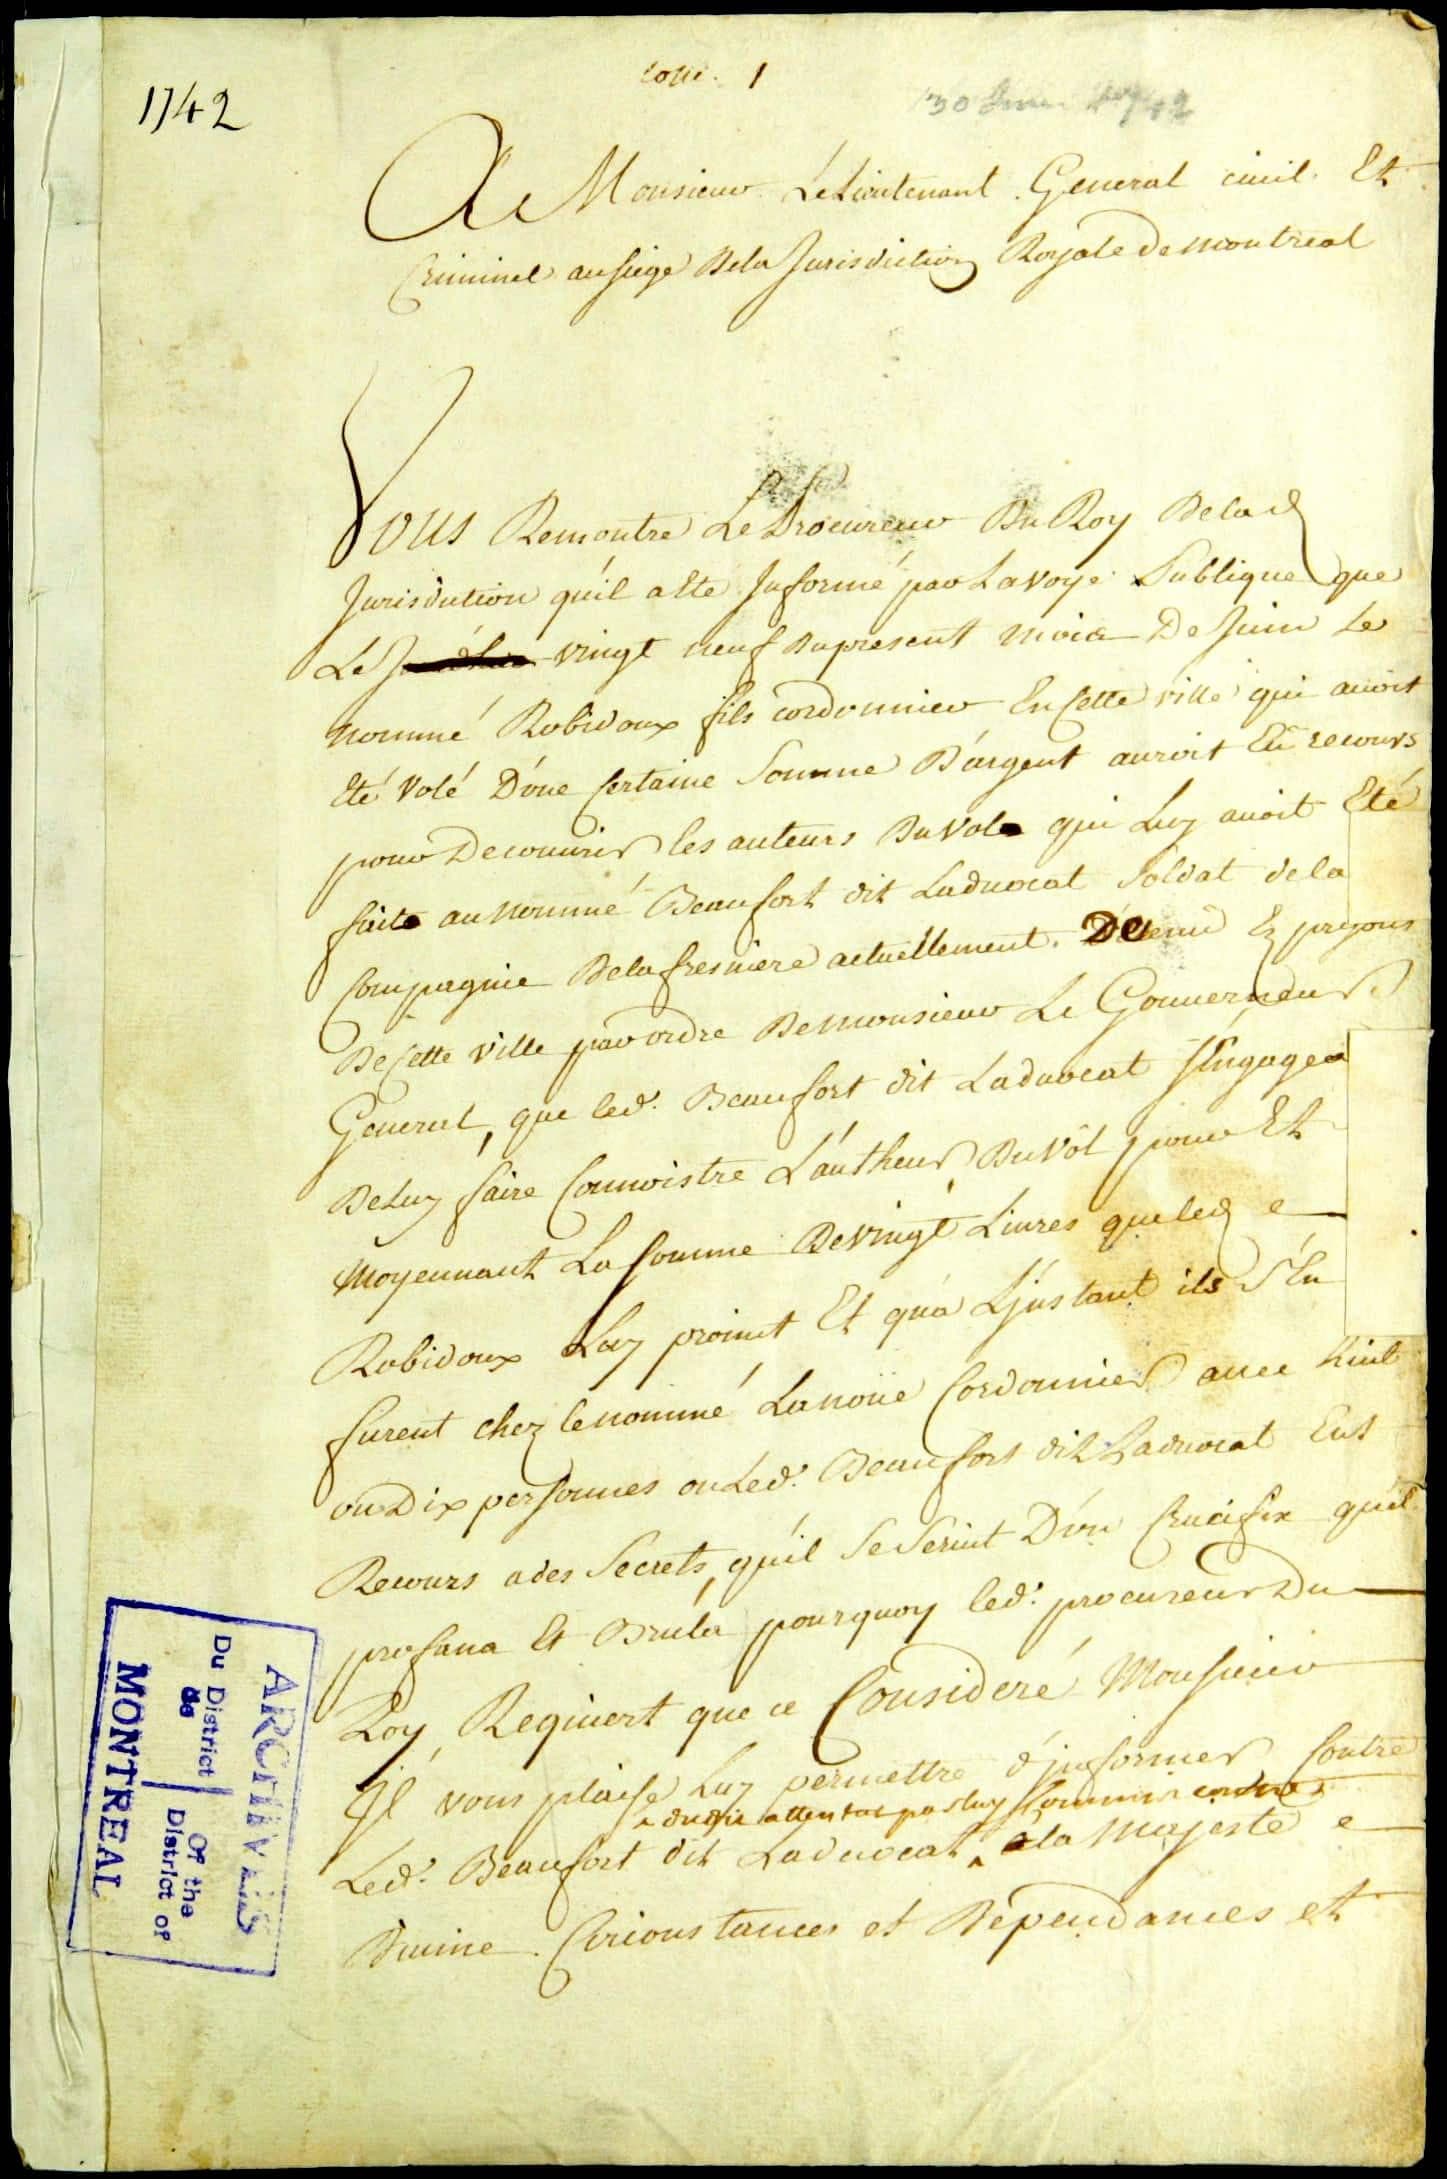 1742
cotté. 1
30 Juin 1742
A Monsieur Le Lieutenant General ciuil Et
Criminel au siege De la Jurisdiction Royale de montreal
Vous Remontre Le Procureur Du Roy De lad
Jurisdiction qu'il a Ete Informé par La voye Publique que
Le vingt neuf du present mois De Juin Le
nommé Robidoux fils cordonnier En Cette ville qui auoit
Eté Volé D'une Certaine Somme D'argent auroit Eü recours
pour Decouurir les auteurs Du Vol qui Luy auoit Eté
fait au nommé Beaufort dit Laduocat Soldat de la
Compagnie De lafresniere actuellement. Détenü Es prisons
De Cette Ville par ordre De monsieur Le Gouuerneur
General, que led. Beaufort dit Laduocat s'Engagea
De Luy faire Connoistre L'autheur Du Vôl pour Et
moyennant La somme De vingt Liures que led
Robidoux Luy promit Et qu'a L'jnstant ils S'En
furent chez le nommé Lanoüe Cordonnier auec huit
ou Dix personnes ou Led. Beaufort dit Laduocat Eut
Recours a des Secrets, qu'il Se Seruit D'un Crucifix qu'il
profana Et Brula pourquoy led. procureur Du
Roy Requiert que ce Consideré Monsieur
Jl vous plaise Luy permettre d'jnformer Contre
attentat par luy Commis contre
Led. Beaufort dit Laduocat la Majesté
Diuine Circonstances et Dépendances et
ARCHIVES
Du District
de
Of the
District of
MONTREAL